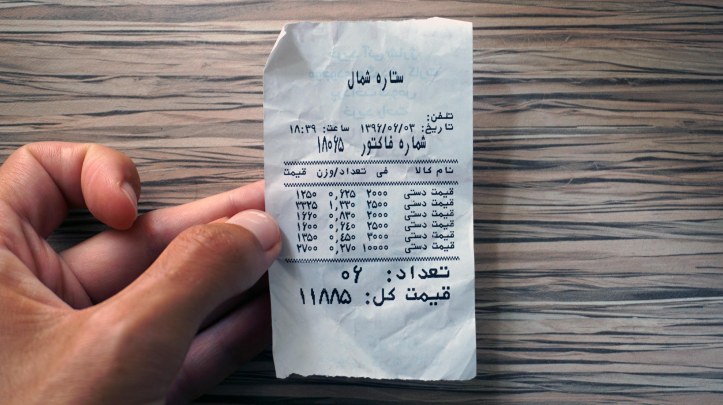 ستاره شمال
تلفن:
تاریخ: ۱۳۹۶/۰۶/۰۳ ساعت: ۱۸:۳۹
شماره فاکتور ۱۸۰۶۵
نام کالا فی تعداد/وزن قیمت
قیمت دستی ۲۰۰۰ ۰,۶۲۵ ۱۲۵۰
قیمت دستی ۲۵۰۰ ۱,۳۳۰ ۳۳۲۵
قیمت دستی ۲۰۰۰ ۰,۸۳۰ ۱۶۶۰
قیمت دستی ۲۵۰۰ ۰,۶۴۰ ۱۶۰۰
قیمت دستی ۳۰۰۰ ۰,۴۵۰ ۱۳۵۰
قیمت دستی ۱۰۰۰۰ ۰,۲۷۰ ۲۷۰۰
تعداد: ۰۶
قیمت کل: ۱۱۸۸۵